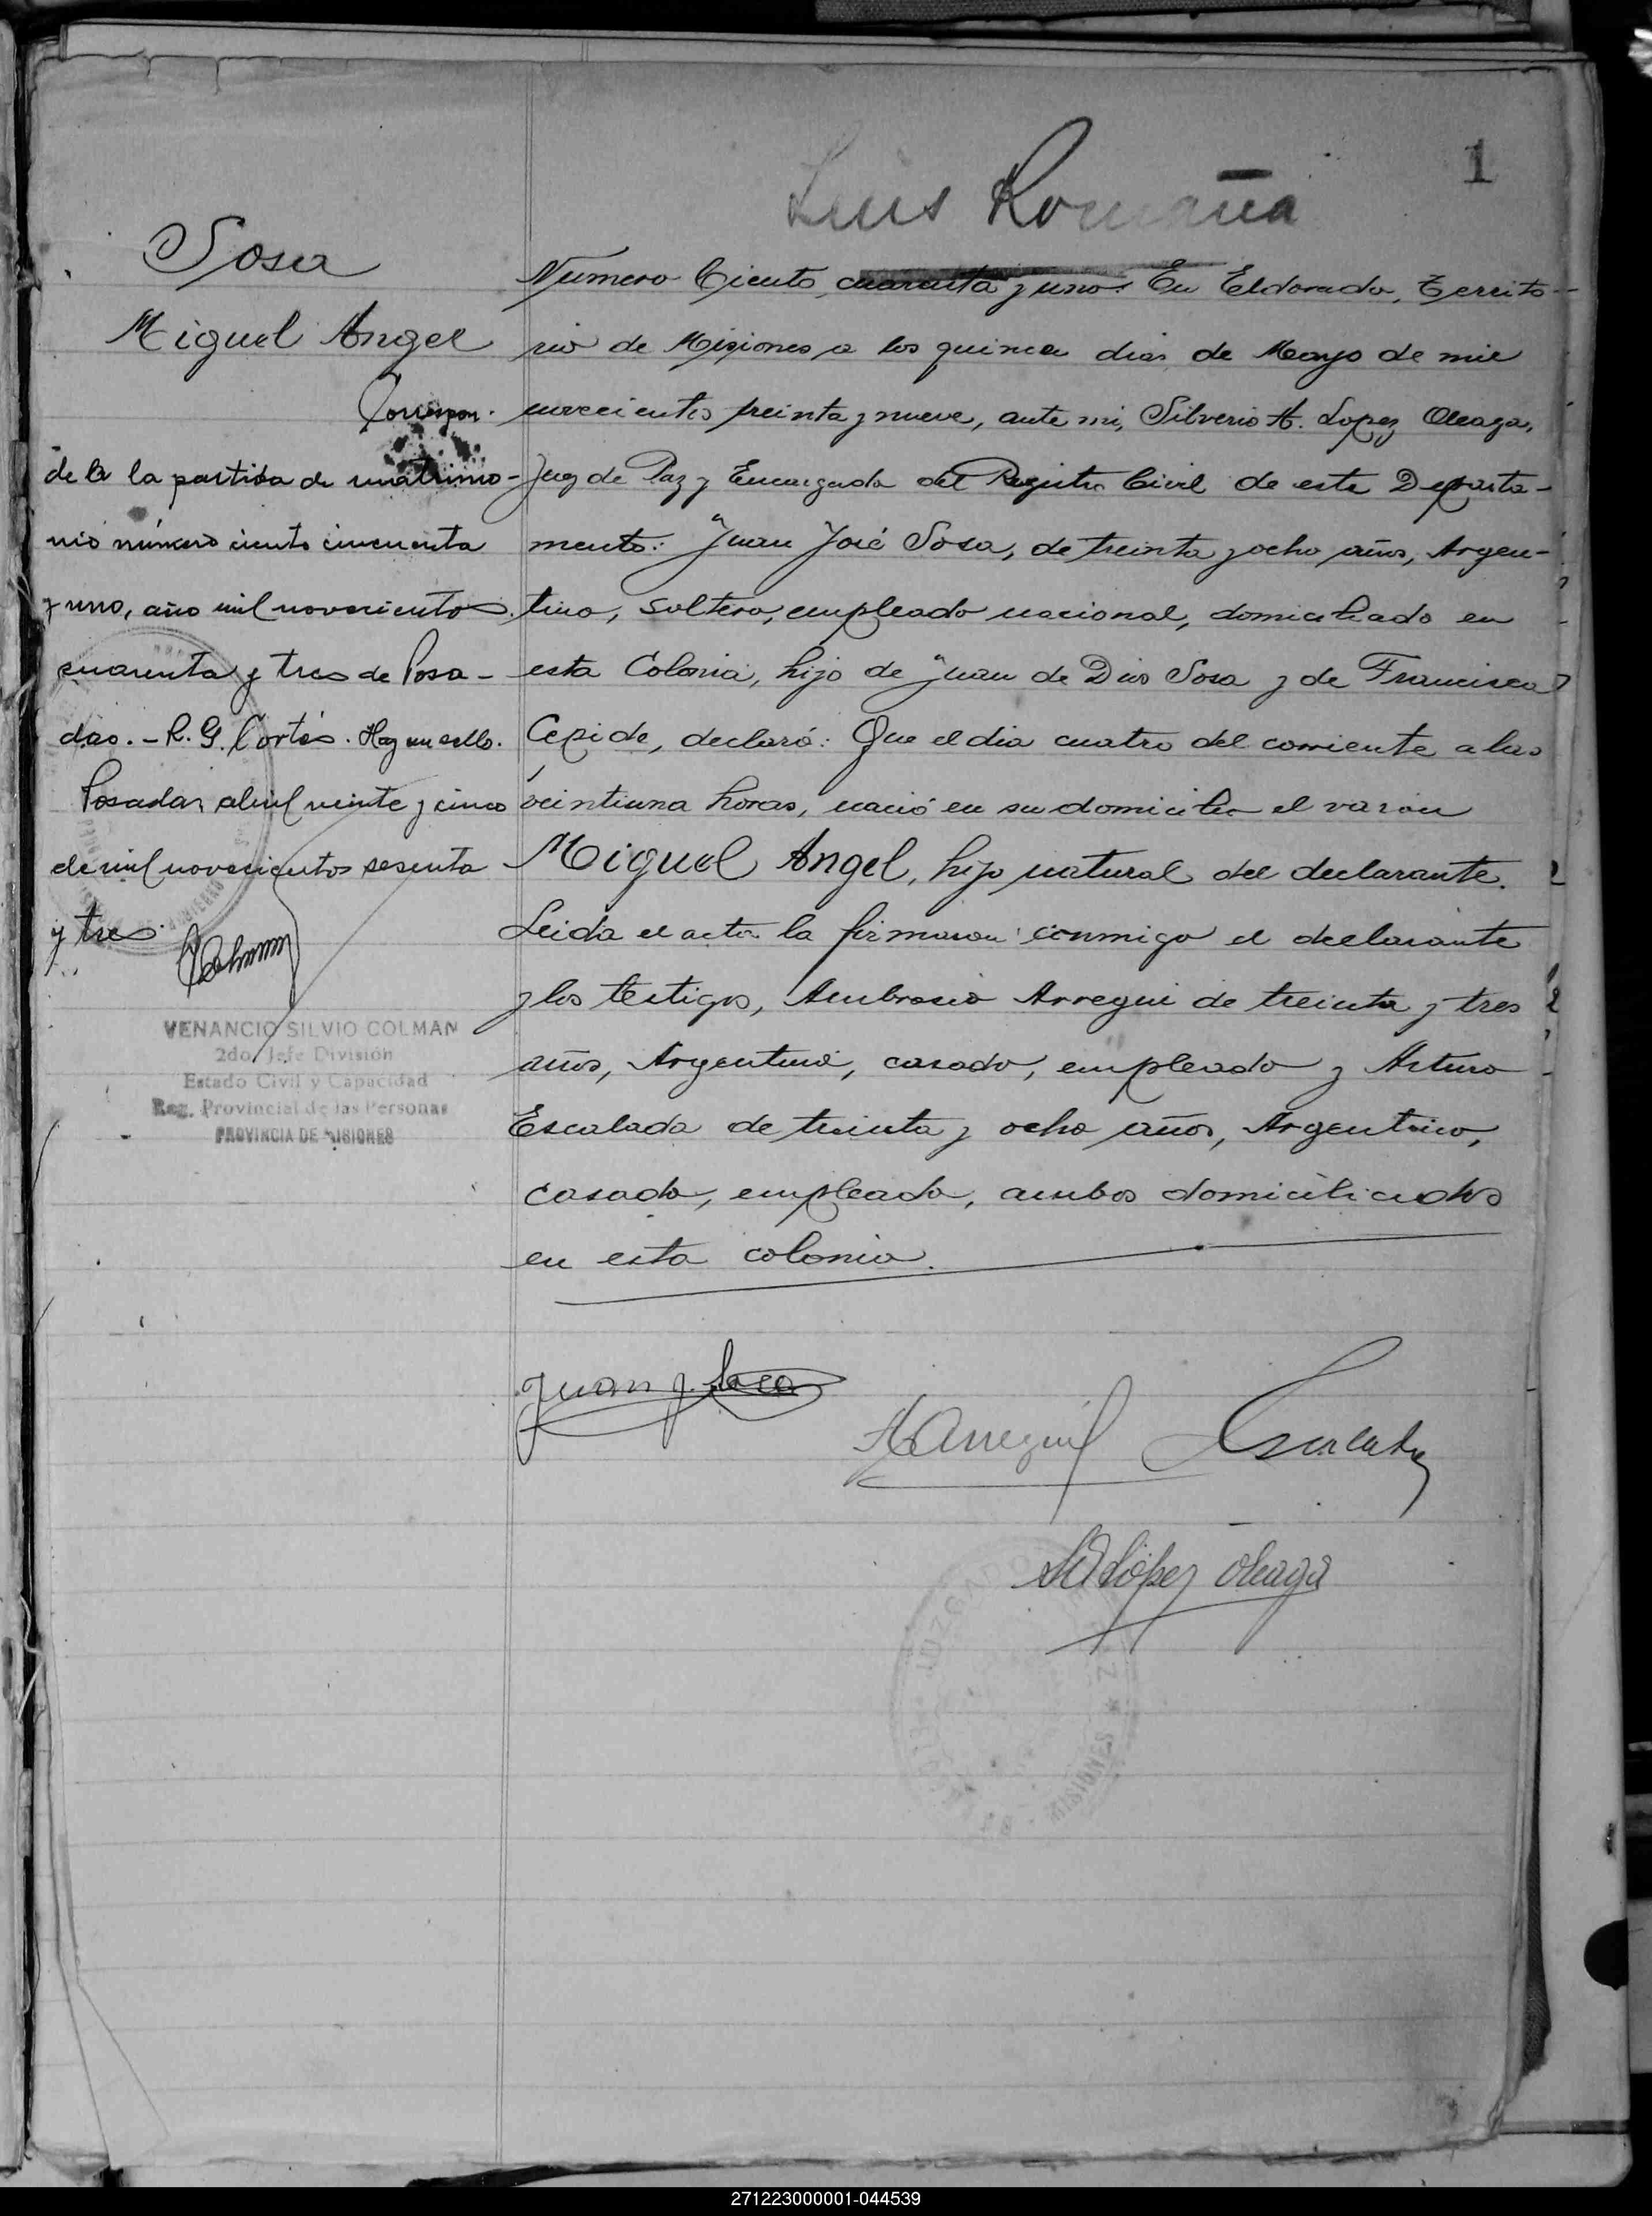 1
Luis Romaña
Sosa
Miguel Angel
Correspon-
de la partida de matrimo-
nio número ciento cincuenta
y uno, año mil novecientos
cuarenta y tres de Posa-
das. - R. G. Cortés. Hay un sello.
Posadas, abril veinte y cinco
de mil novecientos sesenta
y tres.
VENANCIO SILVIO COLMAN
2do. Jefe División
Estado Civil y Capacidad
Reg. Provincial de las Personas
PROVINCIA DE MISIONES
Número Ciento cuarenta y uno. En Eldorado, Territo-
rio de Misiones a los quince dias de Mayo de mil
novecientos treinta y nueve, ante mi, Silverio A. Lopez Oleaga,
Juez de Paz y Encargado del Registro Civil de este Departa-
mento: Juan José Sosa, de treinta y ocho años, Argen-
tino, soltero, empleado nacional, domiciliado en
esta Colonia, hijo de Juan de Dios Sosa y de Francisca
Cepide, declaró: Que el dia cuatro del corriente a las
veintiuna horas, nació en su domicilio el varon
Miguel Angel, hijo natural del declarante.
Leida el acta la firmaron conmigo el declarante
y los testigos, Ambrosio Arregui de treinta y tres
años, Argentino, casado, empleado y Arturo
Escalada de treinta y ocho años, Argentino,
casado, empleado, ambos domiciliados
en esta colonia.
Juan J. Sosa
A Arregui Escalada
S A López Oleaga
JUZGADO
MISIONES
271223000001-044539